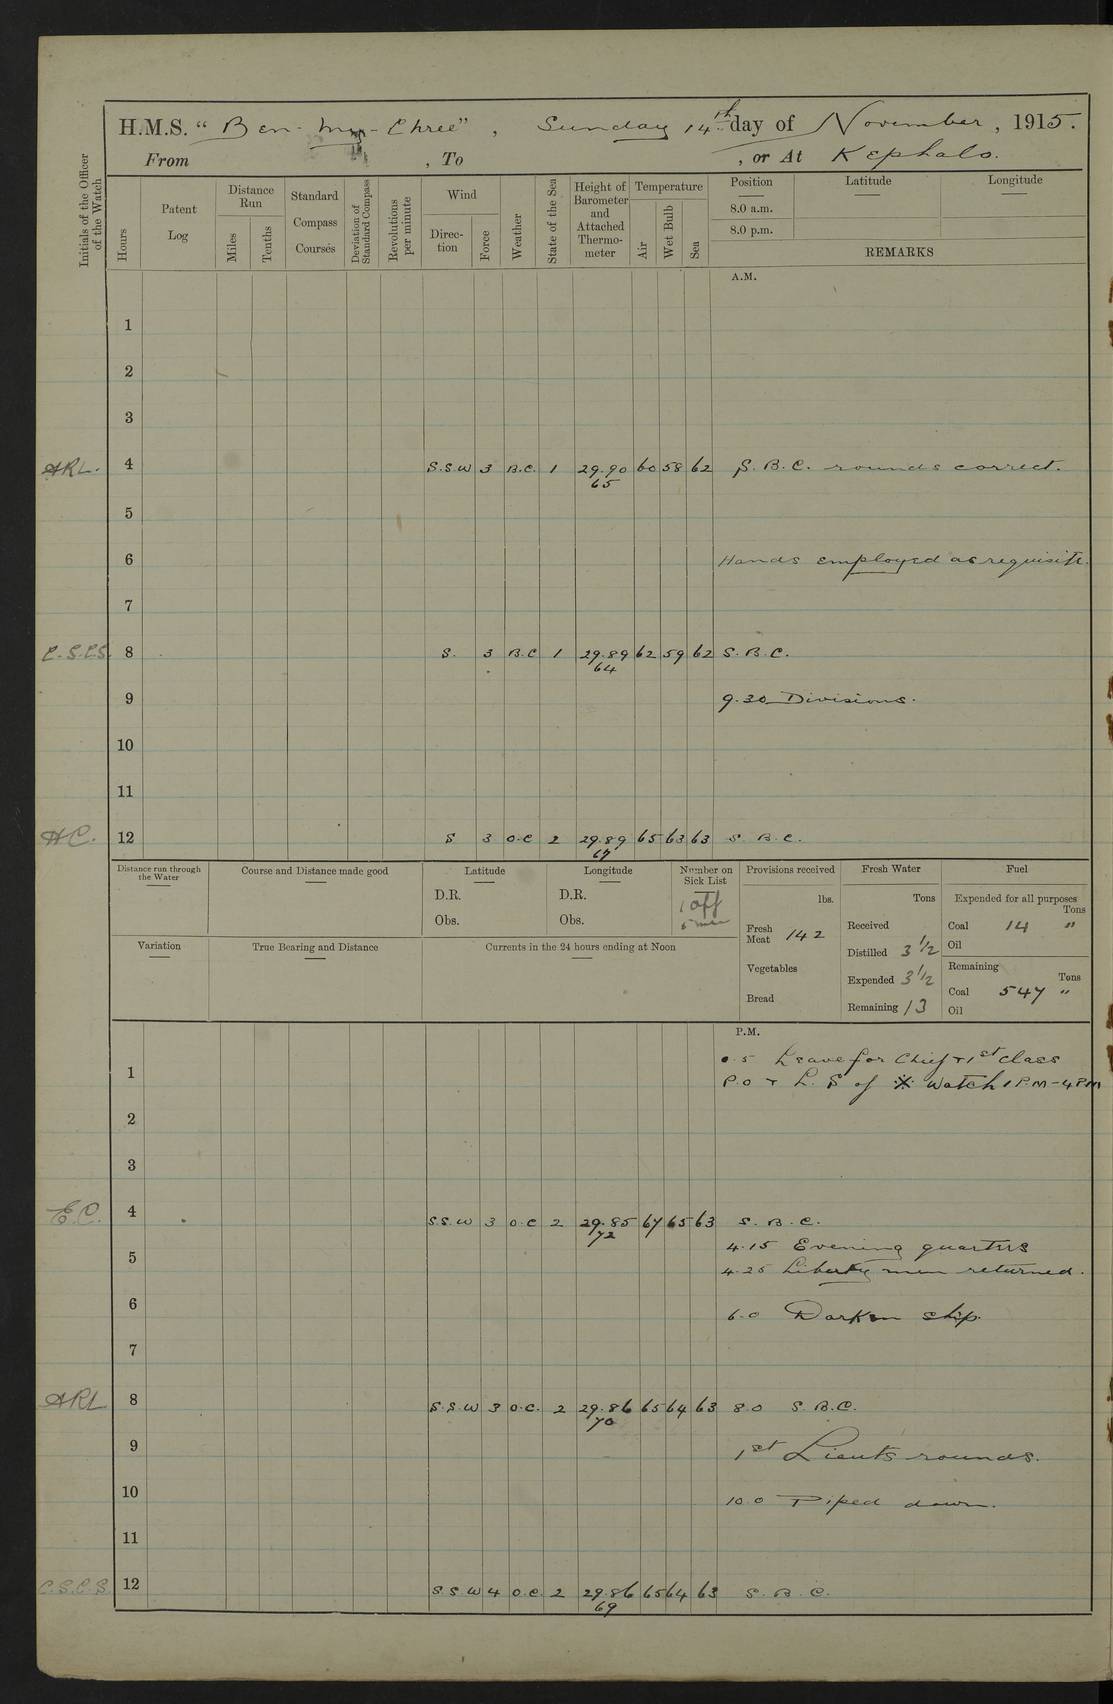 H.M.S. “ Ben-my-Chree” , Sunday 14th day of November , 1915.
From , To , or At Kephalo.
Initials of the Officer of the Watch
Hours
Patent Log
Distance Run
Miles
Tenths
Standard Compass Courses
Deviation of Standard Compass
Revolutions per minute
Wind
Direc- tion
Force
Weather
State of the Sea
Height of Barometer and Attached Thermo- meter
Temperature
Air
Wet Bulb
Sea
Position
8.0 a.m.
8.0 p.m.
Latitude
Longitude
REMARKS
A.M.
1
2
3
ARL. 4 S.S.W 3 B.C. 1 29.90 60 58 62 S.B.C. rounds correct.
65
5
6 Hands employed as requisite.
7
C.S.C.S. 8 S. 3 B.C 1 29.89 62 59 62 S.B.C.
64
9 9.30 Divisions.
10
11
HC. 12 S 3 O.C 2 29.89 65 63 63 S.B.C.
67
Distance run through the Water
Course and Distance made good
Latitude
D.R.
Obs.
Longitude
D.R.
Obs.
Number on Sick List
1 off
5 men
Provisions received
lbs.
Fresh Meat 142
Vegetables
Bread
Fresh Water
Tons
Received
Distilled 3 1/2
Expended 3 1/2
Remaining 13
Fuel
Expended for all purposes
Tons
Coal 14 "
Oil
Remaining
Tons
Coal 547 "
Oil
Variation
True Bearing and Distance
Currents in the 24 hours ending at Noon
P.M.
0.5 Leave for Chief + 1st class
1 P.O + L.S of ※ Watch 1 P.M-4PM
2
3
E.C. 4 S.S.W 3 O.C 2 29.85 67 65 63 S.B.C.
72
4.15 Evening quarters
5 4.25 Liberty men returned.
6 6.0 Darken ship.
7
ARL 8 S.S.W 3 O.C. 2 29.86 65 64 63 8.0 S.B.C.
70
9 1st Lieuts rounds.
10 10.0 Piped down.
11
C.S.C.S. 12 S S W 4 O.C. 2 29.86 65 64 63 S.B.C.
69